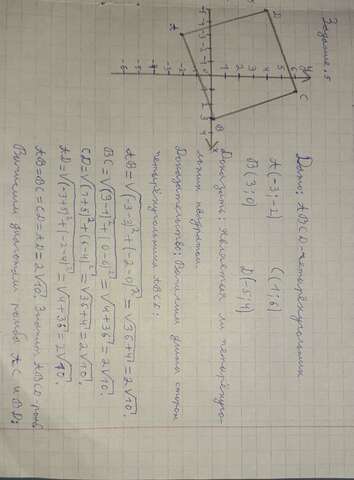 Задание 5
Дано: ABCD-четырёхугольник
A(-3;-2) C(1;6)
B(3;0) D(-5;4)
Доказать: является ли четырёхуго-
льник квадратом
Доказательство: Вычислим длины сторон
четырёхугольника ABCD:
AB=√(-3-3)²+(-2-0)²=√36+4=2√10.
BC=√(3-1)²+(0-6)²=√4+36=2√10.
CD=√(1+5)²+(6-4)²=√36+4=2√10.
AD=√(-3+5)²+(-2-4)²=√4+36=2√10.
AB=BC=CD=AD=2√10. Значит ABCD-ромб
Вычислим диагонали ромба AC и BD:
A
B
C
D
y
x
-6 -5 -4 -3 -2 1 2 3 4 5 6